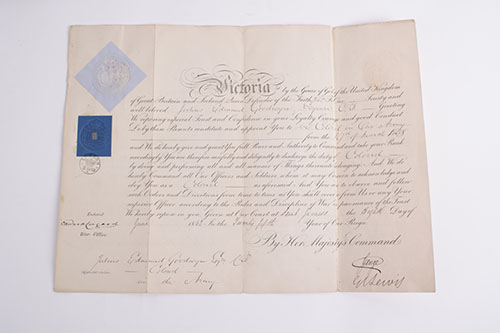 Victoria by the Grace of God of the United Kingdom
of Great Britain and Ireland Queen Defender of the Faith &c. To Our Trusty and
well beloved Julius Edmund Goodwyn Esquire C.B. Greeting
We reposing especial Trust and Confidence in your Loyalty Courage and good Conduct
Do by these Presents constitute and appoint You to be Colonel in Our Army
from the
and We do hereby give and grant You full Power and Authority to Command and take your Rank
accordingly You are therefore carefully and diligently to discharge the duty of Colonel
by doing and performing all and all Manner of Things thereunto belonging And We do
hereby Command all Our Officers and Soldiers whom it may concern to acknowledge and
obey You as a Colonel as aforesaid And You are to observe and follow
such Orders and Directions from time to time as You shall receive from Us or any Your
superior Officer according to the Rules and Discipline of War in pursuance of the Trust
We hereby repose in you Given at Our Court at Saint James's the Day of
in the Year of Our Reign
By Her Majesty's Command
Entered
War Office
Julius Edmund Goodwyn Esqr C.B.
Colonel
in the Army
G C Lewis